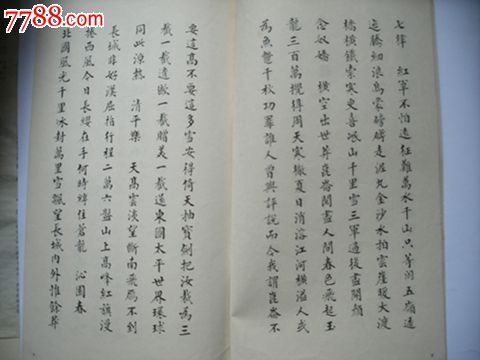 7788.com
七律　紅軍不怕遠征難萬水千山只等閒五嶺逶
迤騰細浪烏蒙磅礴走泥丸金沙水拍雲崖暖大渡
橋橫鐵索寒更喜岷山千里雪三軍過後盡開顏
念奴嬌　橫空出世莽崑崙閱盡人間春色飛起玉
龍三百萬攪得周天寒徹夏日消溶江河橫溢人或
為魚鱉千秋功罪誰人曾與評說而今我謂崑崙不
要這高不要這多雪安得倚天抽寶劍把汝裁為三
截一截遺歐一截贈美一截還東國太平世界環球
同此涼熱　清平樂　天高雲淡望斷南飛雁不到
長城非好漢屈指行程二萬六盤山上高峰紅旗漫
捲西風今日長纓在手何時縛住蒼龍　沁園春
北國風光千里冰封萬里雪飄望長城內外惟餘莽